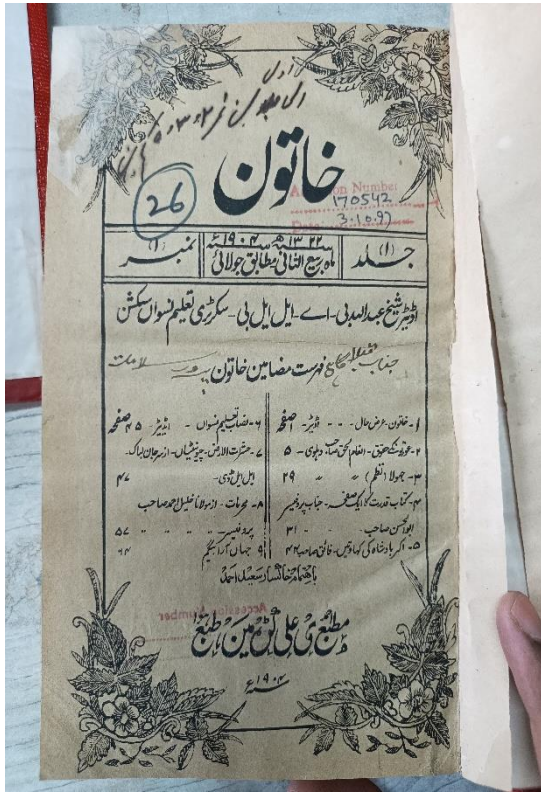 خاتون
26
Accession Number
170542
3.10.97
Date
جلد (۱)
ماہ ربیع الثانی ۱۳۲۲ھ مطابق جولائی ۱۹۰۴ء
نمبر (۱)
اڈیٹر شیخ عبداللہ بی - اے - ایل ایل بی - سکرٹری تعلیم نسواں سکشن
فہرست مضامین خاتون
۱- خاتون - عرض حال - - اڈیٹر - ۱ صفحہ
۲- عورتوں کے حقوق - انعام الحق صاحب دہلوی - ۵
۳- جھولا (نظم) - ۲۹
۴- کتاب قدرت کا ایک صفحہ - جناب پروفیسر
ابوالحسن صاحب - ۳۱
۵- اکبر بادشاہ کی کہاوتیں - فائق صاحب ۴۴
۶- نصاب تعلیم نسواں - اڈیٹر - ۴۵ صفحہ
۷- حشرت الارض - چونٹیاں - از سر جان لباک -
ایل ایل ڈی - ۴۷
۸- محرمات - از مولانا خلیل احمد صاحب
پروفیسر - ۵۷
۹ جہاں آرا بیگم ۶۴
باہتمام خاکسار سعید احمد
Accession Number
۱۹۰۴ء